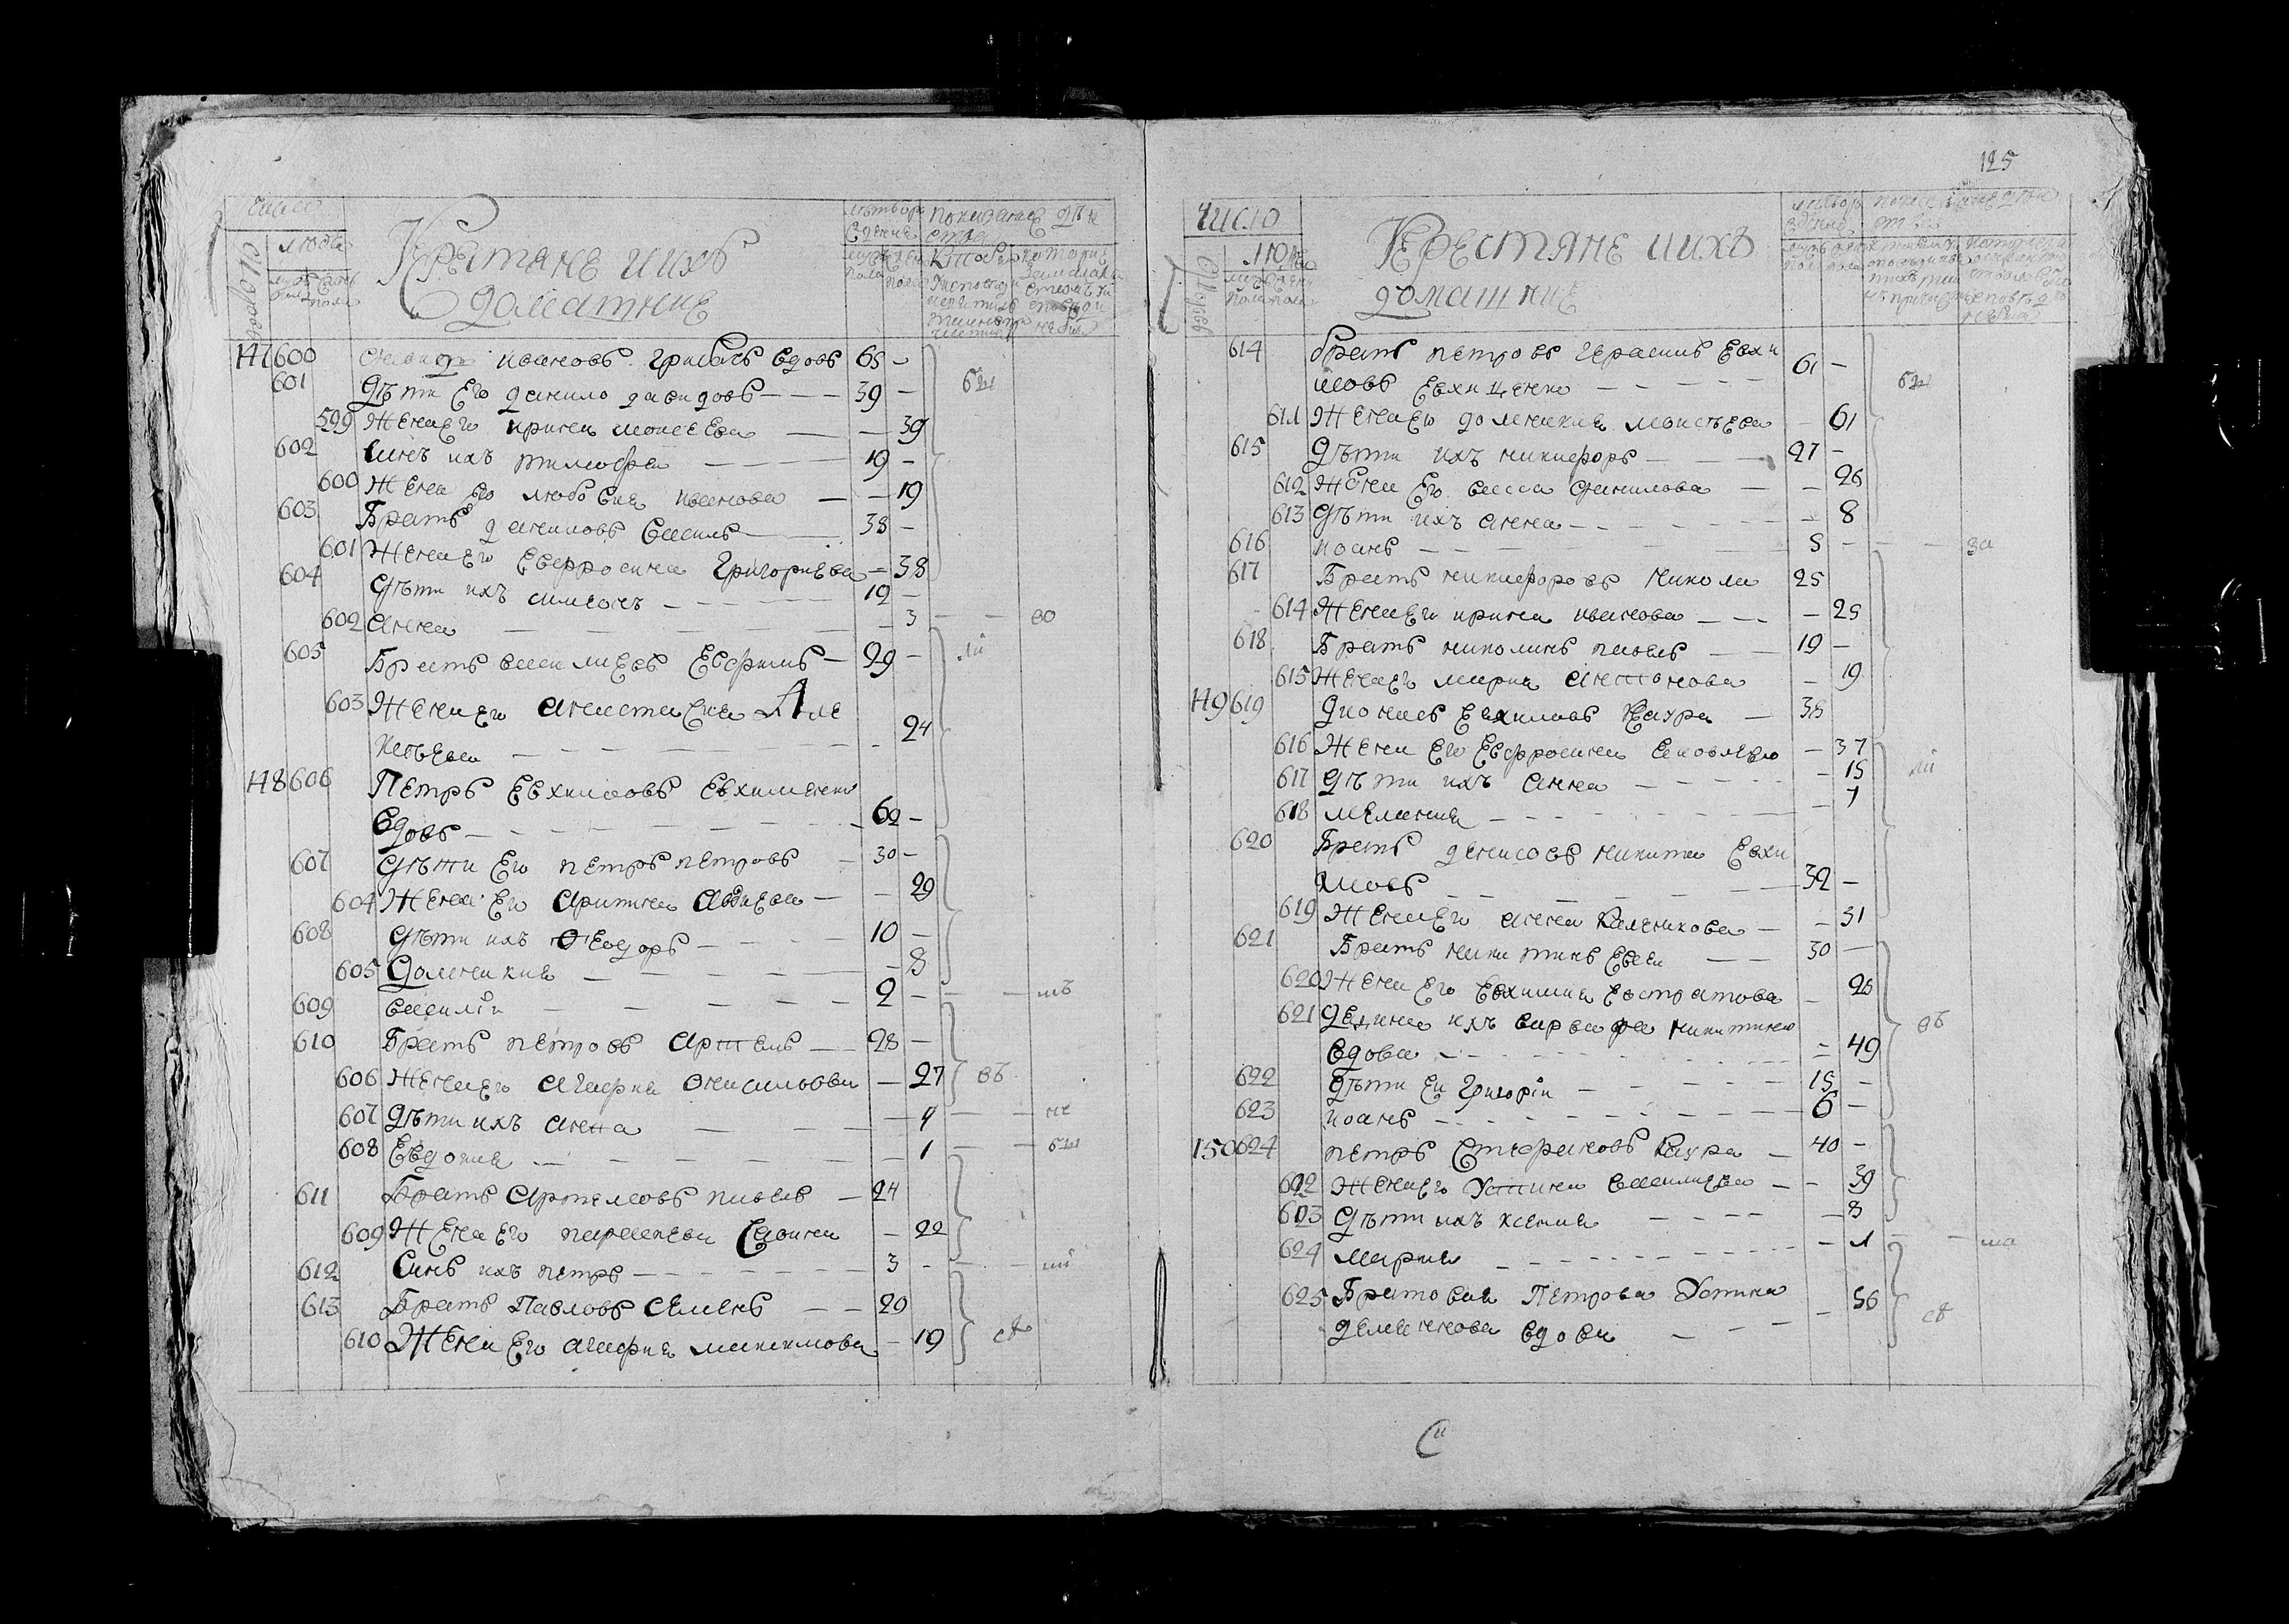 число
людей
дворовъ
мужеска пола
женска пола
Крестяне и ихъ
домашние
147 600 Давидъ Ивановъ Грибачъ вдовъ 65 —
601 Дѣти его Данило Давидовъ — — — 39 —
599 Жена его Ирина Моисеева — — 39
602 Синъ ихъ Тимофеи — — — 19 —
600 Жена его Любовия Иванова — — 19
603 Братъ Даниловъ Василь — 38 —
601 Жена его Евфросина Григориева — 38
604 Дѣти ихъ Симеонъ — — — 12 —
602 Анна — — — — 3 — — во
605 Братъ Василиевъ Евфимъ — 29 —
603 Жена его Анастасия Але
— — — — — 24
148 606 Петръ Евхимовъ Евхименко
вдовъ — — — — — 62 —
607 Дѣти его Петръ Петровъ — 30 —
604 Жена его Ирина Авдиева — — 29
608 Дѣти ихъ Феодоръ — — — 10 —
605 Домникия — — — — 8
609 Василiи — — — — 2 — — — шъ
610 Братъ Петровъ Артемъ — 28 —
606 Жена его Агафия — 27 въ
607 Дѣти ихъ Анна — — — 4 — —
608 Евдокия — — — — — 1 — —
611 Братъ Артемовъ Павелъ — 24
609 Жена его Параскева Савина — 22
612 Синъ ихъ Петръ — — — — 3 — — —
613 Братъ Павловъ Семенъ — — 20
610 Жена его Агафия Максимова — 19
125
число
людей
дворовъ
Крестяне и ихъ
домашние
614 Братъ Петровъ Герасимъ Евхи
мовъ Евхименко — — — — 61 —
611 Жена его Домникия Моисѣева — 61
615 Дѣти ихъ Никифоръ — — 27 —
612 Жена его Васса Данилова — — 26
613 Дѣти ихъ Анна — — — — — 8
616 Иоанъ — — — — 5 — — — за
617 Братъ Никифоровъ Никола 25
614 Жена его Ирина Иванова — — — 25
618 Братъ Николинъ Павелъ — — 19 —
615 Жена его Мария Антонова — 19
149 619 Дионисъ Евхимовъ Каура — 38
616 Жена его Евфросиния Яковлева — 37
617 Дѣти ихъ Анна — — — 15
618 Мелания — — — — — 7
620 Братъ Денисовъ Никита Евхи
мовъ — — — — 32 —
619 Жена его Анна Каленикова — — 31
621 Братъ Никитинъ Евсеи — — 30 —
620 Жена его Евхимия Евстратова — 26
621 Дядина ихъ Варвара Никитина
вдова — — — — — — 49 въ
622 Дѣти еи Григорiи — — — — 15 —
623 Иоанъ — — — — — 6 —
150 624 Петръ Стефановъ Каура — 40 —
622 Жена его Устина Василиева — — 39
623 Дѣти ихъ Ксения — — — — 8
624 Мария — — — — — — 1 — —
625 Братовая Петрова Устина
вдова — — — — 56